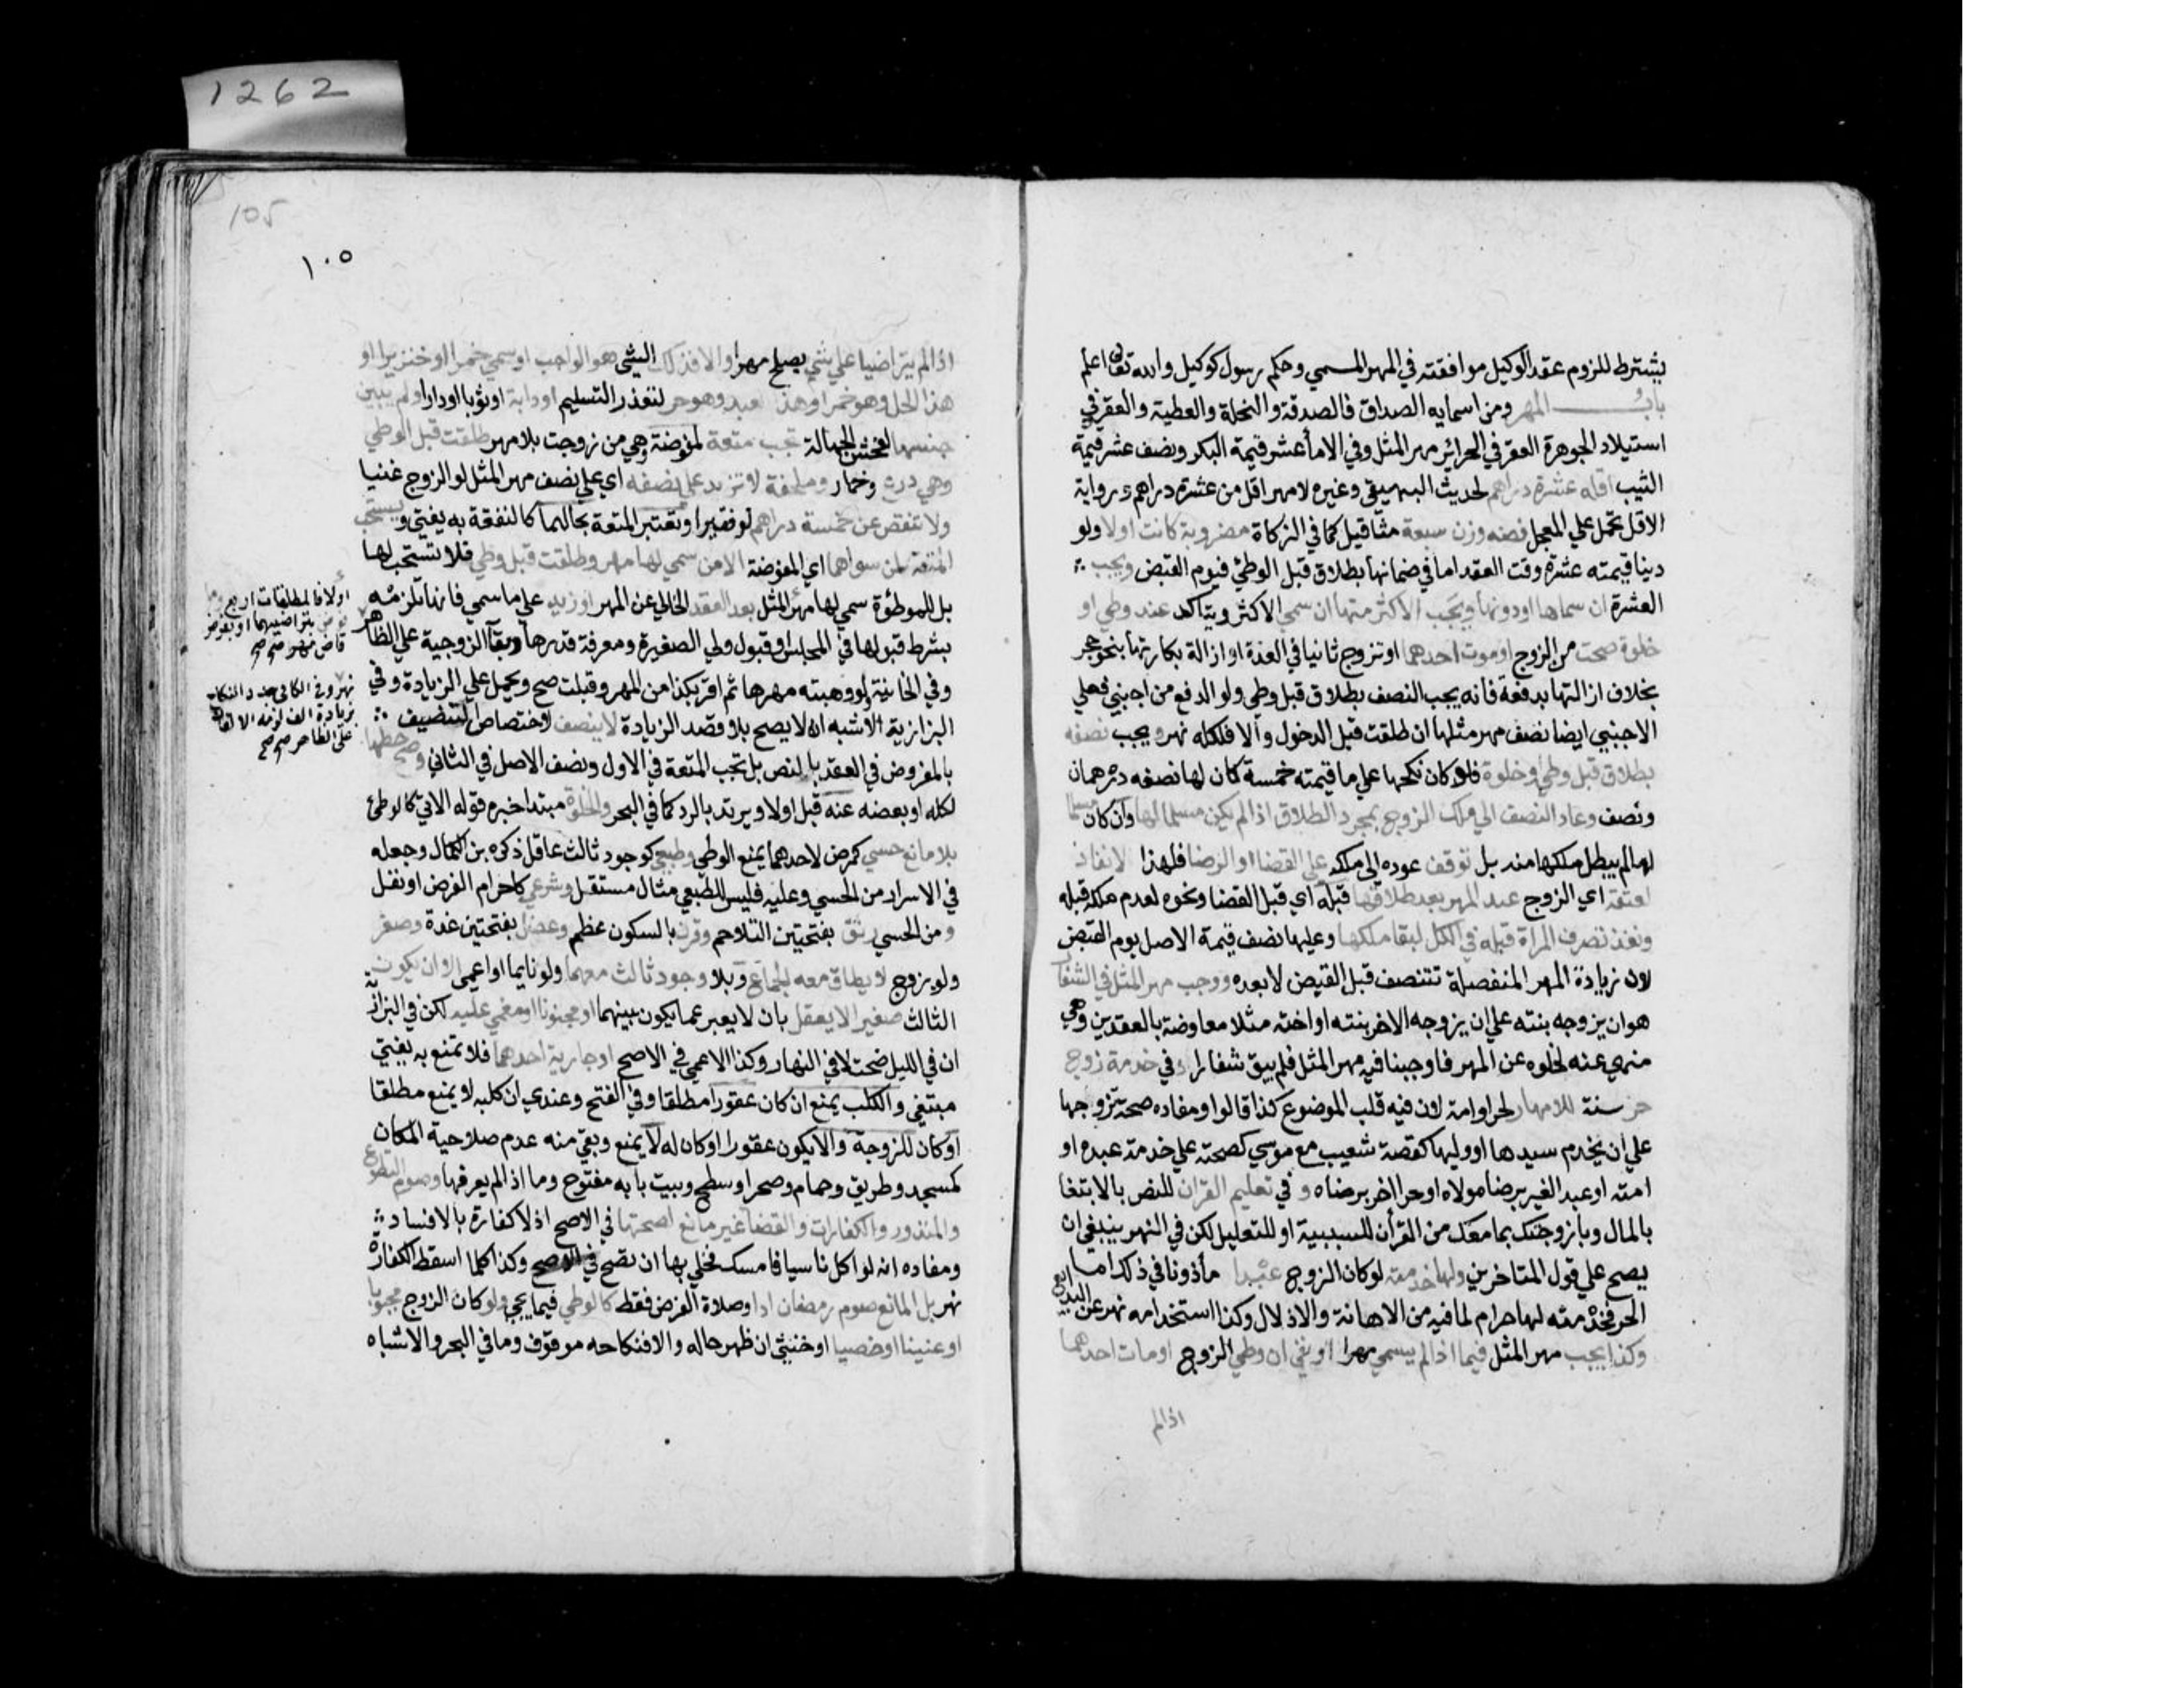 يشترط للزوم عقد الوكيل موافقته في المهر المسمي وحكم رسول كوكيل والله تعالى اعلم
باب المهر ومن اسمايه الصداق فالصدقة والنحلة والعطية والعقر في
استيلاد الجوهرة العقر في الحرائر مهر المثل وفي الاماء عشر قيمة البكر ونصف عشر قيمة
الثيب اقله عشرة دراهم لحديث البيهقي وغيره لا مهر اقل من عشرة دراهم ورواية
الاقل تحمل علي المعجل فضه وزن سبعة مثاقيل كما في الزكاة مضروبة كانت اولا ولو
دينا قيمته عشرة وقت العقد اما في ضمانها بطلاق قبل الوطئ فيوم القبض ويجب
العشرة ان سماها او دونها ويجب الاكثر منها ان سمي الاكثر ويتاكد عند وطي او
خلوة صحت من الزوج او موت احدهما او تزوج ثانيا في العدة او ازالة بكارتها بنحو حجر
بخلاف ازالتها بدفعة فانه يجب النصف بطلاق قبل وطي ولو الدفع من اجنبي فعلي
الاجنبي ايضا نصف مهر مثلها ان طلقت قبل الدخول والا فلكله نهر ويجب نصفه
بطلاق قبل وطي او خلوة فلو كان نكحها علي ما قيمته خمسة كان لها نصفه درهمان
ونصف وعاد النصف الي ملك الزوج بمجرد الطلاق اذا لم يكن مسلما لها وان كان مسلما
لها لم يبطل ملكها منه بل توقف عوده الى ملكه علي القضا او الرضا فلهذا لا نفاذ
لعتقه اي الزوج عبد المهر بعد طلاقها قبله اي قبل القضا ونحوه لعدم ملكه قبله
ونفذ تصرف المراة قبله في الكل لبقا ملكها وعليها نصف قيمة الاصل يوم القبض
لان زيادة المهر المنفصلة تتنصف قبل القبض لا بعده ووجب مهر المثل في الشغار
هو ان يزوجه بنته علي ان يزوجه الاخر بنته او اخته مثلا معاوضة بالعقدين وهي
منهي عنه لخلوه عن المهر فاوجبنا فيه مهر المثل فلم يبق شغارا وفي خدمة زوج
حر سنة للامهار لحر او امة لان فيه قلب الموضوع كذا قالوا ومفاده صحة تزوجها
علي ان يخدم سيدها او وليها كقصة شعيب مع موسي كصحته علي خدمة عبده او
امته او عبد الغير برضا مولاه او حر اخر برضاه وفي تعليم القران للنص بالابتغا
بالمال وبازوجتك بما معك من القرأن للسببية او للتعليل لكن في النهر ينبغي ان
يصح علي قول المتاخرين ولها خدمته لو كان الزوج عبدا مأذونا في ذلك اما
الحر فخدمته لها حرام لما فيه من الاهانة والاذلال وكذا استخدامه نهر عن البدايع
وكذا يجب مهر المثل فيما اذا لم يسمي مهرا او نفي ان وطي الزوج او مات احدهما
اذا لم
1262
105
١٠٥
اذا لم يتراضيا علي شي يصلح مهرا والا فذلك الشي هو الواجب او سمي خمرا او خنزيرا او
هذا الخل وهو خمر او هذا العبد وهو حر لتعذر التسليم او دابة او ثوبا او دارا ولم يبين
جنسها لفحش الجهالة تجب متعة لمفوضة وهي من زوجت بلا مهر طلقت قبل الوطي
وهي درع وخمار وملحفة لا تزيد علي نصفه اي علي نصف مهر المثل لو الزوج غنيا
ولا تنقص عن خمسة دراهم لو فقيرا وتعتبر المتعة بحالهما كالنفقة به يفتي ويستحب
المتعة لمن سواهما اي المفوضة الا من سمي لها مهر وطلقت قبل وطي فلا تستحب لها
بل للموطؤة سمي لها مهر المثل بعد العقد الخالي عن المهر او زيد علي ما سمي فانها تلزمه
بشرط قبولها في المجلس او قبول ولي الصغيرة ومعرفة قدرها وبقآ الزوجية علي الظاهر
وفي الخانية ولو وهبته مهرها ثم اقر بكذا من المهر وقبلت صح ويحمل علي الزيادة وفي
البزازية الاشبه انه لا يصح بلا قصد الزيادة لا ينصف لاختصاص التنصيف
بالمفروض في العقد بالنص بل تجب المتعة في الاول ونصف الاصل في الثاني وصح حطها
لكله او بعضه عنه قبل اولا ويرتد بالرد كما في البحر والخلوة مبتدا خبره قوله الاتي كالوطئ
بلا مانع حسي كمرض لاحدهما يمنع الوطي وطبعي كوجود ثالث عاقل ذكره بن الكمال وجعله
في الاسرار من الحسي وعليه فليس للطبعي مثال مستقل وشرعي كاحرام الفرض او نفل
ومن الحسي رتق بفتحتين التلاحم وقرن بالسكون عظم وعضل بفتحتين غدة وصغر
ولو بزوج لا يطاق معه الجماع وبلا وجود ثالث معهما ولو نايما او اعمى الا ان يكون
الثالث صغير الا يعقل بان لا يعبر عما يكون بينهما او مجنونا او مغمي عليه لكن في البزازية
ان في الليل صحت لا في النهار وكذا الاعمي في الاصح او جارية احدهما فلا تمنع به يفتي
مبتغي والكلب يمنع ان كان عقورا مطلقا وفي الفتح وعندي ان كلبه لا يمنع مطلقا
او كان للزوجة والا يكون عقورا او كان له لا يمنع وبقي منه عدم صلاحية المكان
كمسجد وطريق وحمام وصحرا وسطح وبيت بابه مفتوح وما اذا لم يعرفها وصوم التطوع
والمنذور والكفارات والقضا غير مانع لصحتها في الاصح اذ لا كفارة بالافساد
ومفاده انه لو اكل ناسيا فامسك فخلي بها ان تصح في الاصح وكذا كلما اسقط الكفارة
نهر بل المانع صوم رمضان ادا وصلاة الفرض فقط كالوطي فيما يجي ولو كان الزوج مجبوبا
او عنينا او خصيا او خنثي ان ظهر حاله والا فنكاحه موقوف وما في البحر والاشباه
اولا فالمطلقات اربع
بتراضيهما او بفرض
قاض مهر صح صح
نهر وفي الكافي جدد النكاح
بزيادة الف لزمه الالفان
علي الظاهر صح صح